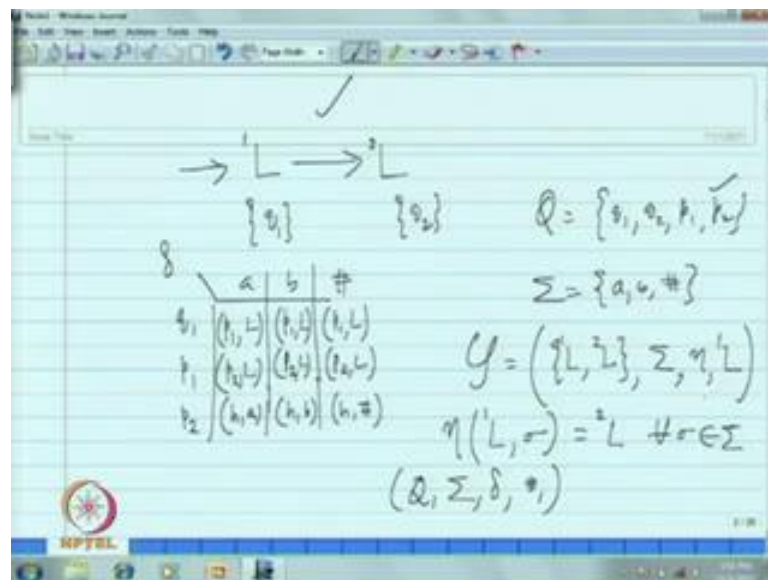 → ¹L → ²L
{q₁} {q₂}
Q = {q₁, q₂, p₁, p₂}
δ
a b #
Σ = {a, b, #}
q₁ (p₁, L) (p₁, L) (p₁, L)
p₁ (p₂, L) (p₂, L) (p₂, L)
p₂ (h, a) (h, b) (h, #)
𝒴 = ({¹L, ²L}, Σ, η, ¹L)
η(¹L, σ) = ²L ∀σ∈Σ
(Q, Σ, δ, q₁)
NPTEL